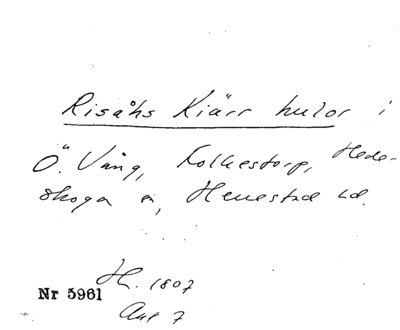 Risåhs Kiärr hulor i
Ö. Vång, Folkestorp, Hede-
skoga s, Herrestad hd.
H. 1807
Nr 5961
Aul 7